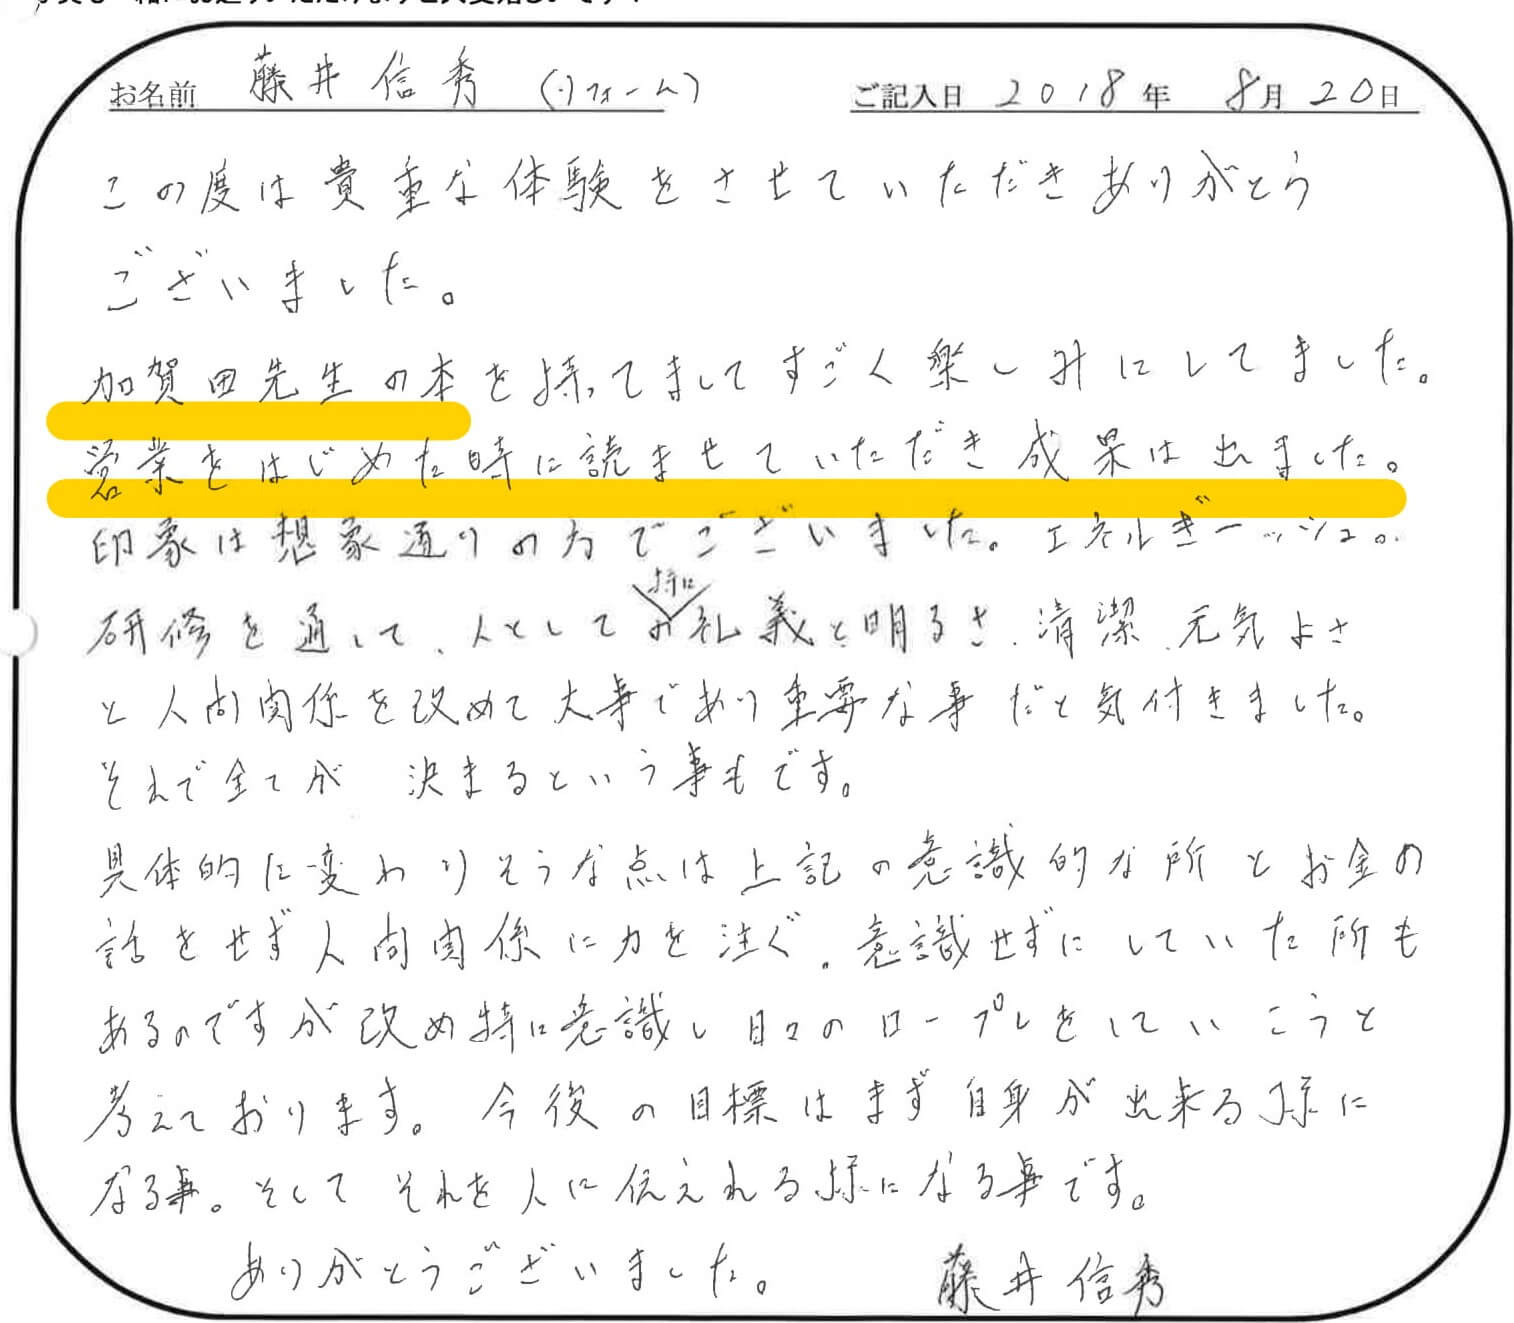 お名前 藤井信秀 (リフォーム) ご記入日 2018年 8月20日
この度は貴重な体験をさせていただきありがとう
ございました。
加賀田先生の本を持ってましてすごく楽しみにしてました。
営業をはじめた時に読ませていただき成果は出ました。
印象は想象通りの方でございました。エネルギーッシュ。
特に
研修を通して、人としての礼義と明るさ、清潔、元気よさ
と人間関係を改めて大事であり重要な事だと気付きました。
それで全てが 決まるという事もです。
具体的に変わりそうな点は上記の意識的な所とお金の
話をせず人間関係に力を注ぐ。意識せずにしていた所も
あるのですが改め特に意識し日々のロープレをしていこうと
考えております。今後の目標はまず自身が出来る様に
なる事。そしてそれを人に伝えれる様になる事です。
ありがとうございました。 藤井信秀